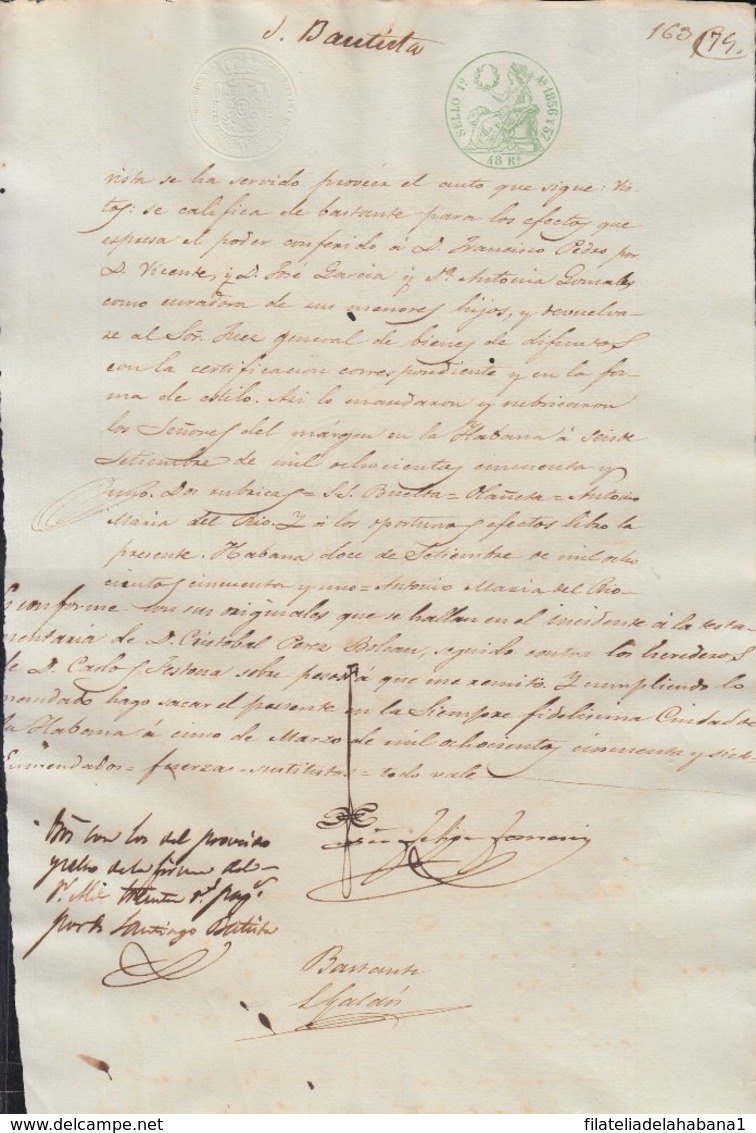 J. Bautista
163 174.
SELLO 1º Aˢ 1856 Y 57
48 Rˢ
vista se ha servido proveér el auto que sigue: Vis-
tos: se califica de bastante para los efectos que
espresa el poder conferido á D. Francisco Pedro por
D. Vicente, y D. José Garcia y Dª Antonia Gonzales
como curadora de sus menores hijos, y devuelva-
se al Sor. Juez general de bienes de difuntos
con la certificacion correspondiente y en la for-
ma de estilo. Asi lo mandaron y rubricaron
los Señores del márgen en la Habana á
Setiembre de mil ochocientos cincuenta y
uno. Dos rubricas = S.S. Buelta = Olañeta = Antonio
Maria del Rio. Y á los oportunos efectos libro la
presente. Habana doce de Setiembre de mil ocho
cientos cincuenta y uno = Antonio Maria del Rio
Es conforme con sus originales que se hallan en el incidente á la testa-
mentaria de D. Cristobal Perez seguido contra los herederos
de D. Carlos sobre pesos á que me remito. Y cumpliendo lo
mandado hago sacar el presente en la Siempre fidelisima Ciudad de
la Habana á cinco de Marzo de mil ochocientos cincuenta y siete
Enmendados = fuerza = sustitutos = todo vale
con los del proveido
de la firma del
por D. Santiago Bautista
José Felipe
Bastante
Galdós
delcampe.net
filateliadelahabana1